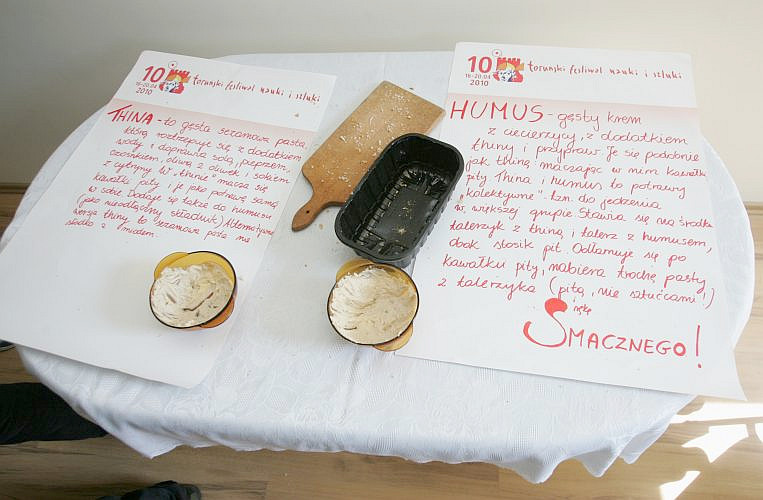 10
16-20.04
2010
toruński festiwal nauki i sztuki
THINA - to gęsta sezamowa pasta,
którą roztrzepuje się z dodatkiem
wody i doprawia solą, pieprzem,
czosnkiem, oliwą z oliwek i sokiem
z cytryny. W „thinie" macza się
kawałki pity i je jako potrawę samą
w sobie. Dodaje się także do humusu
(jako nieodłączny składnik). Alternatywna
wersja thiny to sezamowa pasta na
słodko z miodem
10
16-20.04
2010
toruński festiwal nauki i sztuki
HUMUS - gęsty krem
z ciecierzycy, z dodatkiem
thiny i przypraw. Je się podobnie
jak thinę: maczając w nim kawałki
pity. Thina i humus to potrawy
„kolektywne" tzn. do jedzenia
w większej grupie. Stawia się na środku
talerzyk z thiną i talerz z humusem,
obok stosik pit. Odłamuje się po
kawałku pity, nabiera trochę pasty
z talerzyka (pitą, nie sztućcami!)
SMACZNEGO!